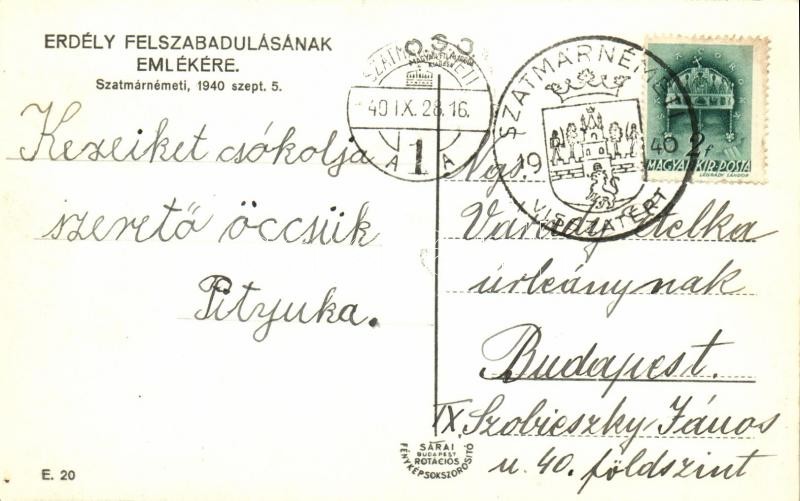 ERDÉLY FELSZABADULÁSÁNAK
EMLÉKÉRE.
Szatmárnémeti, 1940 szept. 5.
Kezeiket csókolja
szerető öccsük
Pityuka.
E. 20
O.S.O.
SZATMÁRNÉMETI
40 IX. 28. 16.
A 1 A
SZATMÁRNÉMETI
19 40
VISSZATÉRT
2f
MAGYAR KIR. POSTA
LÉGRÁDY SÁNDOR
Ngs.
Etelka
úrleánynak
Budapest.
IX. Szobieszky János
u 40. földszint
SÁRAI
BUDAPEST
ROTÁCIÓS
FÉNYKÉPSOKSZOROSÍTÓ